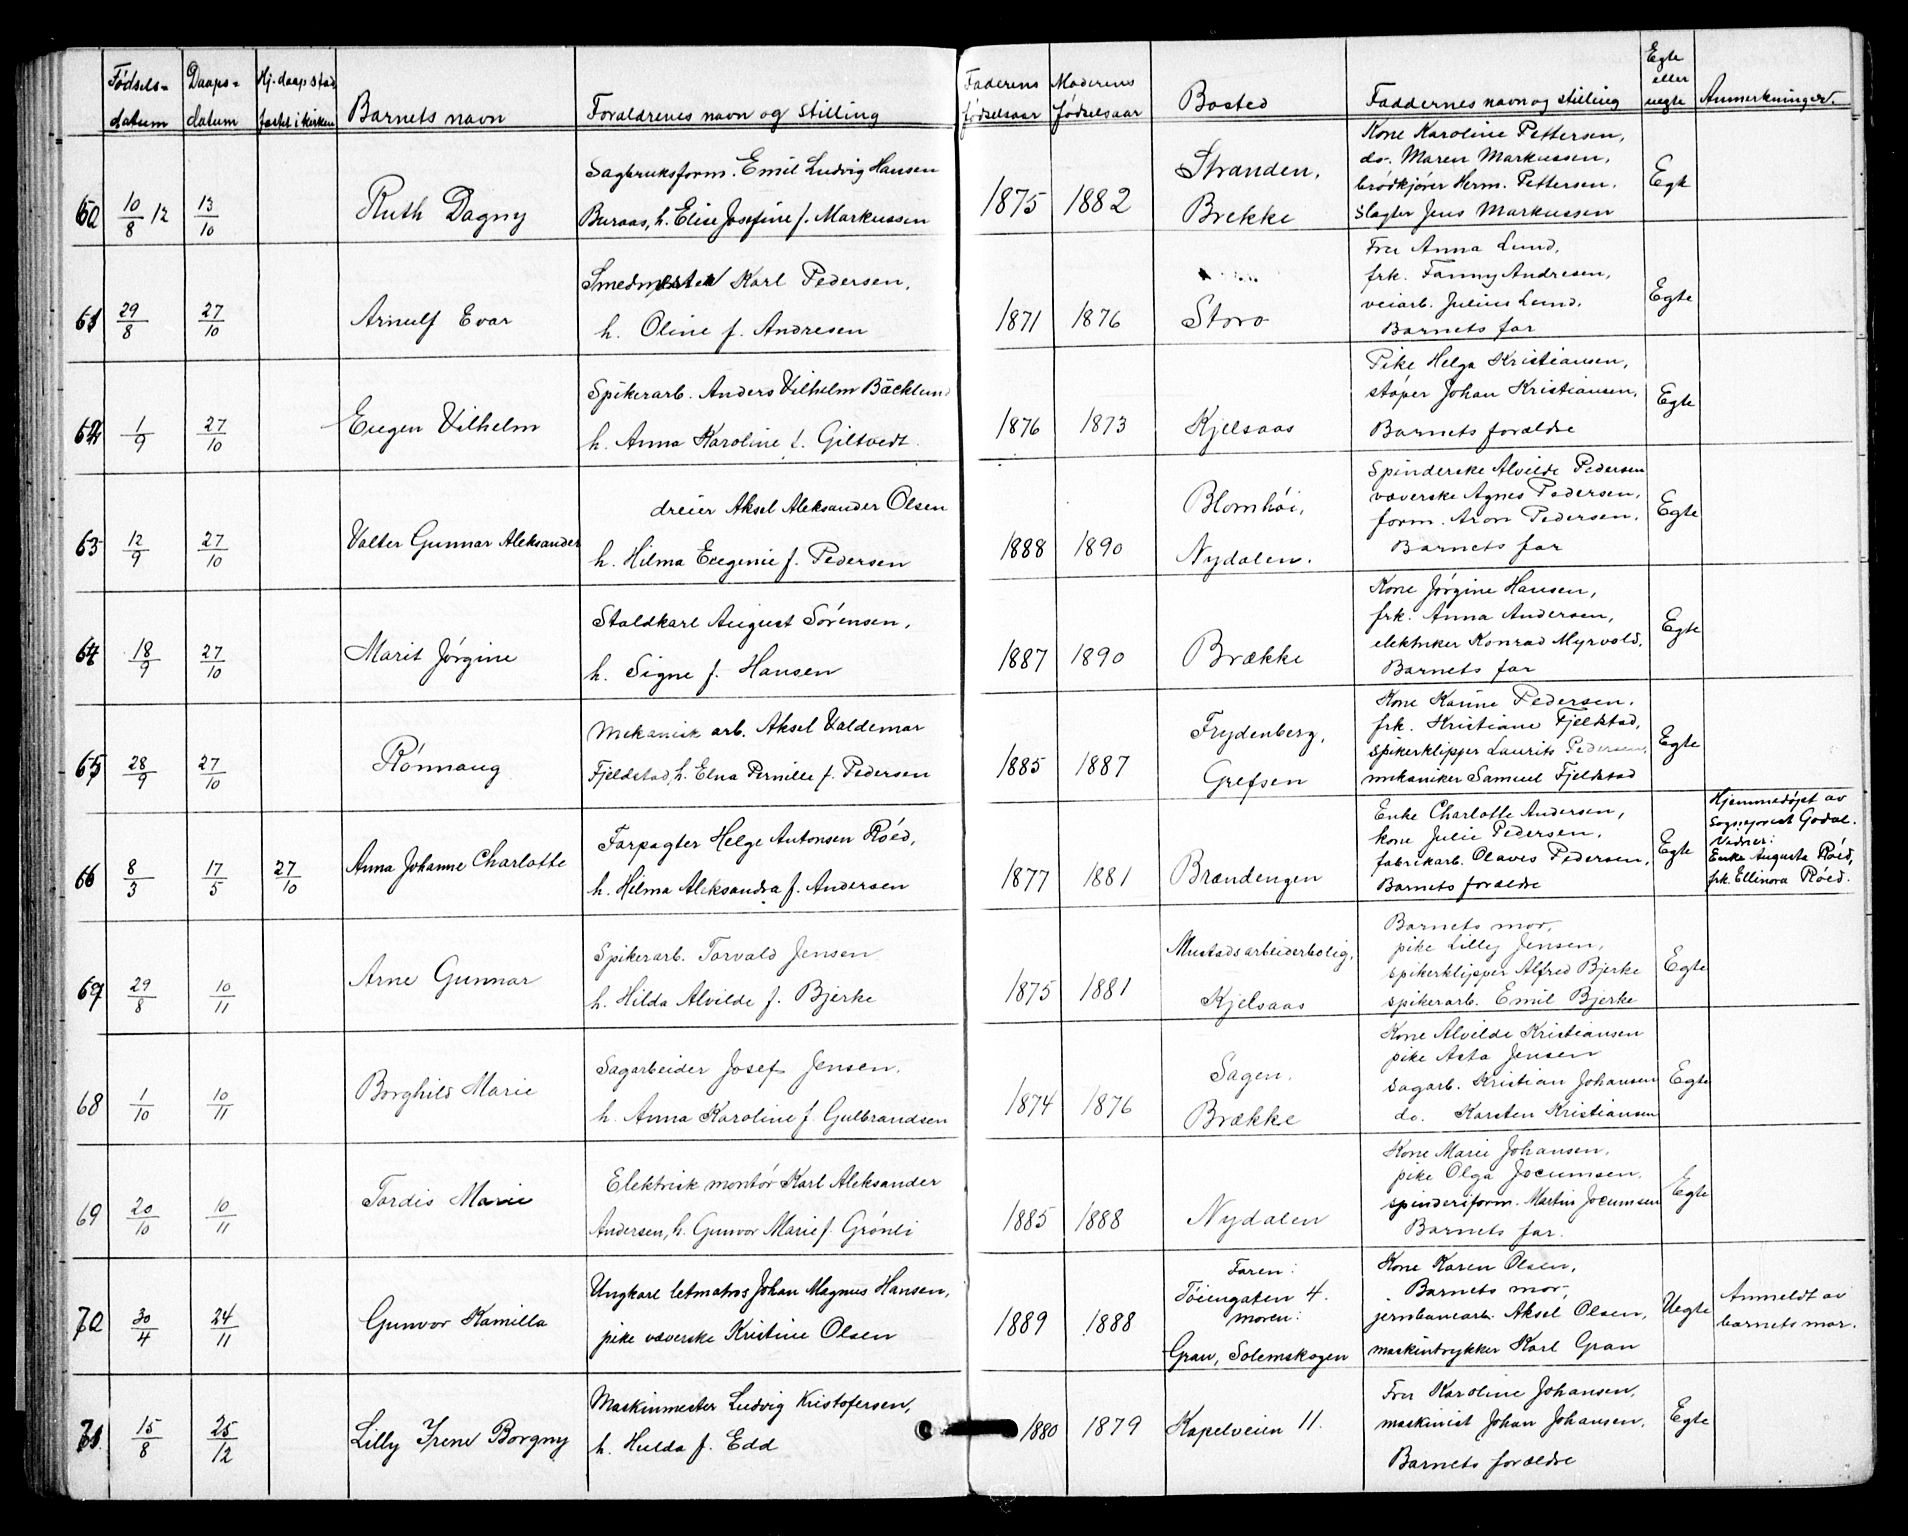 Fødsels-datum | Daaps-datum | Hj.daap stad-fæstet i kirken | Barnets navn | Forældrenes navn og stilling | Faderens fødselsaar | Moderens fødselsaar | Bosted | Faddernes navn og stilling | Egte eller uegte | Anmerkninger.
60 10/8 12 13/10 Ruth Dagny
Sagbruksform. Emil Ludvig Hansen
Buraas, h. Elise Josefine f. Markussen
1875 1882
Stranden,
Brekke
Kone Karoline Pettersen,
do. Maren Markussen,
brödkjörer Herm. Pettersen.
Slagter Jens Markussen
Egte
61 29/8 27/10 Arnulf Evar
Smedmester Karl Pedersen,
h. Oline f. Andresen
1871 1876
Storo
Fru Anna Lund,
frk. Fanny Andresen,
veiarb. Julius Lund.
Barnets far
Egte
62 1/9 27/10 Eugen Vilhelm
Spikerarb. Anders Vilhelm Bäcklund
h. Anna Karoline f. Giltvedt.
1876 1873
Kjelsaas
Pike Helga Kristiansen,
støper Johan Kristiansen,
Barnets forældre
Egte
63 12/9 27/10 Valter Gunnar Aleksander
dreier Aksel Aleksander Olsen
h. Hilma Eugenie f. Pedersen
1888 1890
Blomhöi,
Nydalen.
Spinderske Alvilde Pedersen
væverske Agnes Pedersen,
form. Aron Pedersen.
Barnets far
Egte
64 18/9 27/10 Marit Jörgine
Staldkarl August Sörensen,
h. Signe f. Hansen
1887 1890
Brække
Kone Jörgine Hansen,
frk. Anna Andersen,
elektriker Konrad Myrvold.
Barnets far
Egte
65 28/9 27/10 Rönnaug
Mekanisk arb. Aksel Valdemar
Fjeldstad, h. Elna Pernille f. Pedersen
1885 1887
Frydenberg,
Grefsen
Kone Karine Pedersen.
frk. Kristiane Fjeldstad,
spikerklipper Laurits Pedersen,
mekaniker Samuel Fjeldstad
Egte
66 8/3 17/5 27/10 Anna Johanne Charlotte
Forpagter Helge Antonsen Röed,
h. Hilma Aleksandra f. Andersen
1877 1881
Brændengen
Enke Charlotte Andersen,
kone Julie Pedersen,
fabrikarb. Olaves Pedersen,
Barnets forældre
Egte
Hjemmedøpt av
Sogneprest Godal.
Vidner:
Enke Augusta Röed,
frk. Ellinora Röed.
67 29/8 10/11 Arne Gunnar
Spikerarb. Torvald Jensen
h. Hilda Alvilde f. Bjerke
1875 1881
Mustads arbeiderbolig,
Kjelsaas
Barnets mor,
pike Lilly Jensen,
spikerklipper Alfred Bjerke
spikerarb. Emil Bjerke
Egte
68 1/10 10/11 Borghild Marie
Sagarbeider Josef Jensen.
h. Anna Karoline f. Gulbrandsen
1874 1876
Sagen.
Brække
Kone Alvilde Kristiansen
pike Asta Jensen
sagarb. Kristian Johansen
do. Karsten Kristiansen
Egte
69 20/10 10/11 Tordis Marie
Elektrisk montör Karl Aleksander
Andersen, h. Gunvor Marie f. Grönli
1885 1888
Nydalen
Kone Marie Johansen.
pike Olga Jocumsen.
spinderiform. Martin Jocumsen
Barnets far.
Egte
70 30/4 24/11 Gunvor Kamilla
Ungkarl letmatros Johan Magnus Hansen,
pike væverske Kristine Olsen
1889 1888
Faren:
Töiengaten 4.
moren:
Gran, Solemskogen
Kone Karen Olsen,
Barnets mor,
jernbanearb. Aksel Olsen,
maskintrykker Karl Gran
Uegte
Anmeldt av
barnets mor.
71. 15/8 25/12 Lilly Irene Borgny
Maskinmester Ludvig Kristofersen,
h. Hulda f. Edd
1880 1879
Kapelveien 11.
Fru Karoline Johansen,
maskinist Johan Johansen,
Barnets forældre
Egte